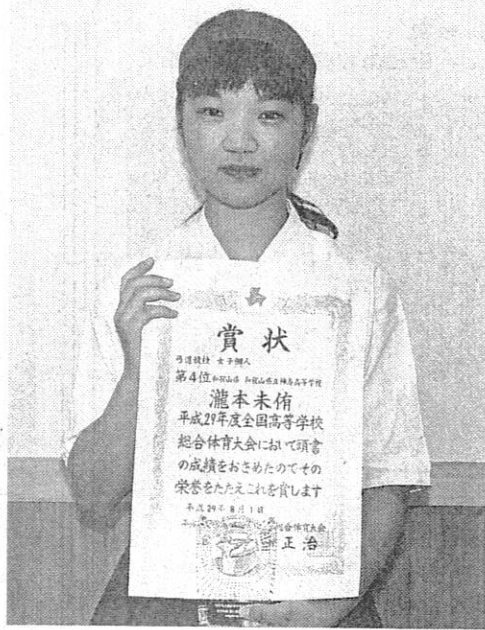 賞状
弓道競技 女子個人
第4位 和歌山県 和歌山県立神島高等学校
瀧本未侑
平成29年度全国高等学校
総合体育大会において頭書
の成績をおさめたのでその
栄誉をたたえこれを賞します
平成29年8月1日
総合体育大会
正治